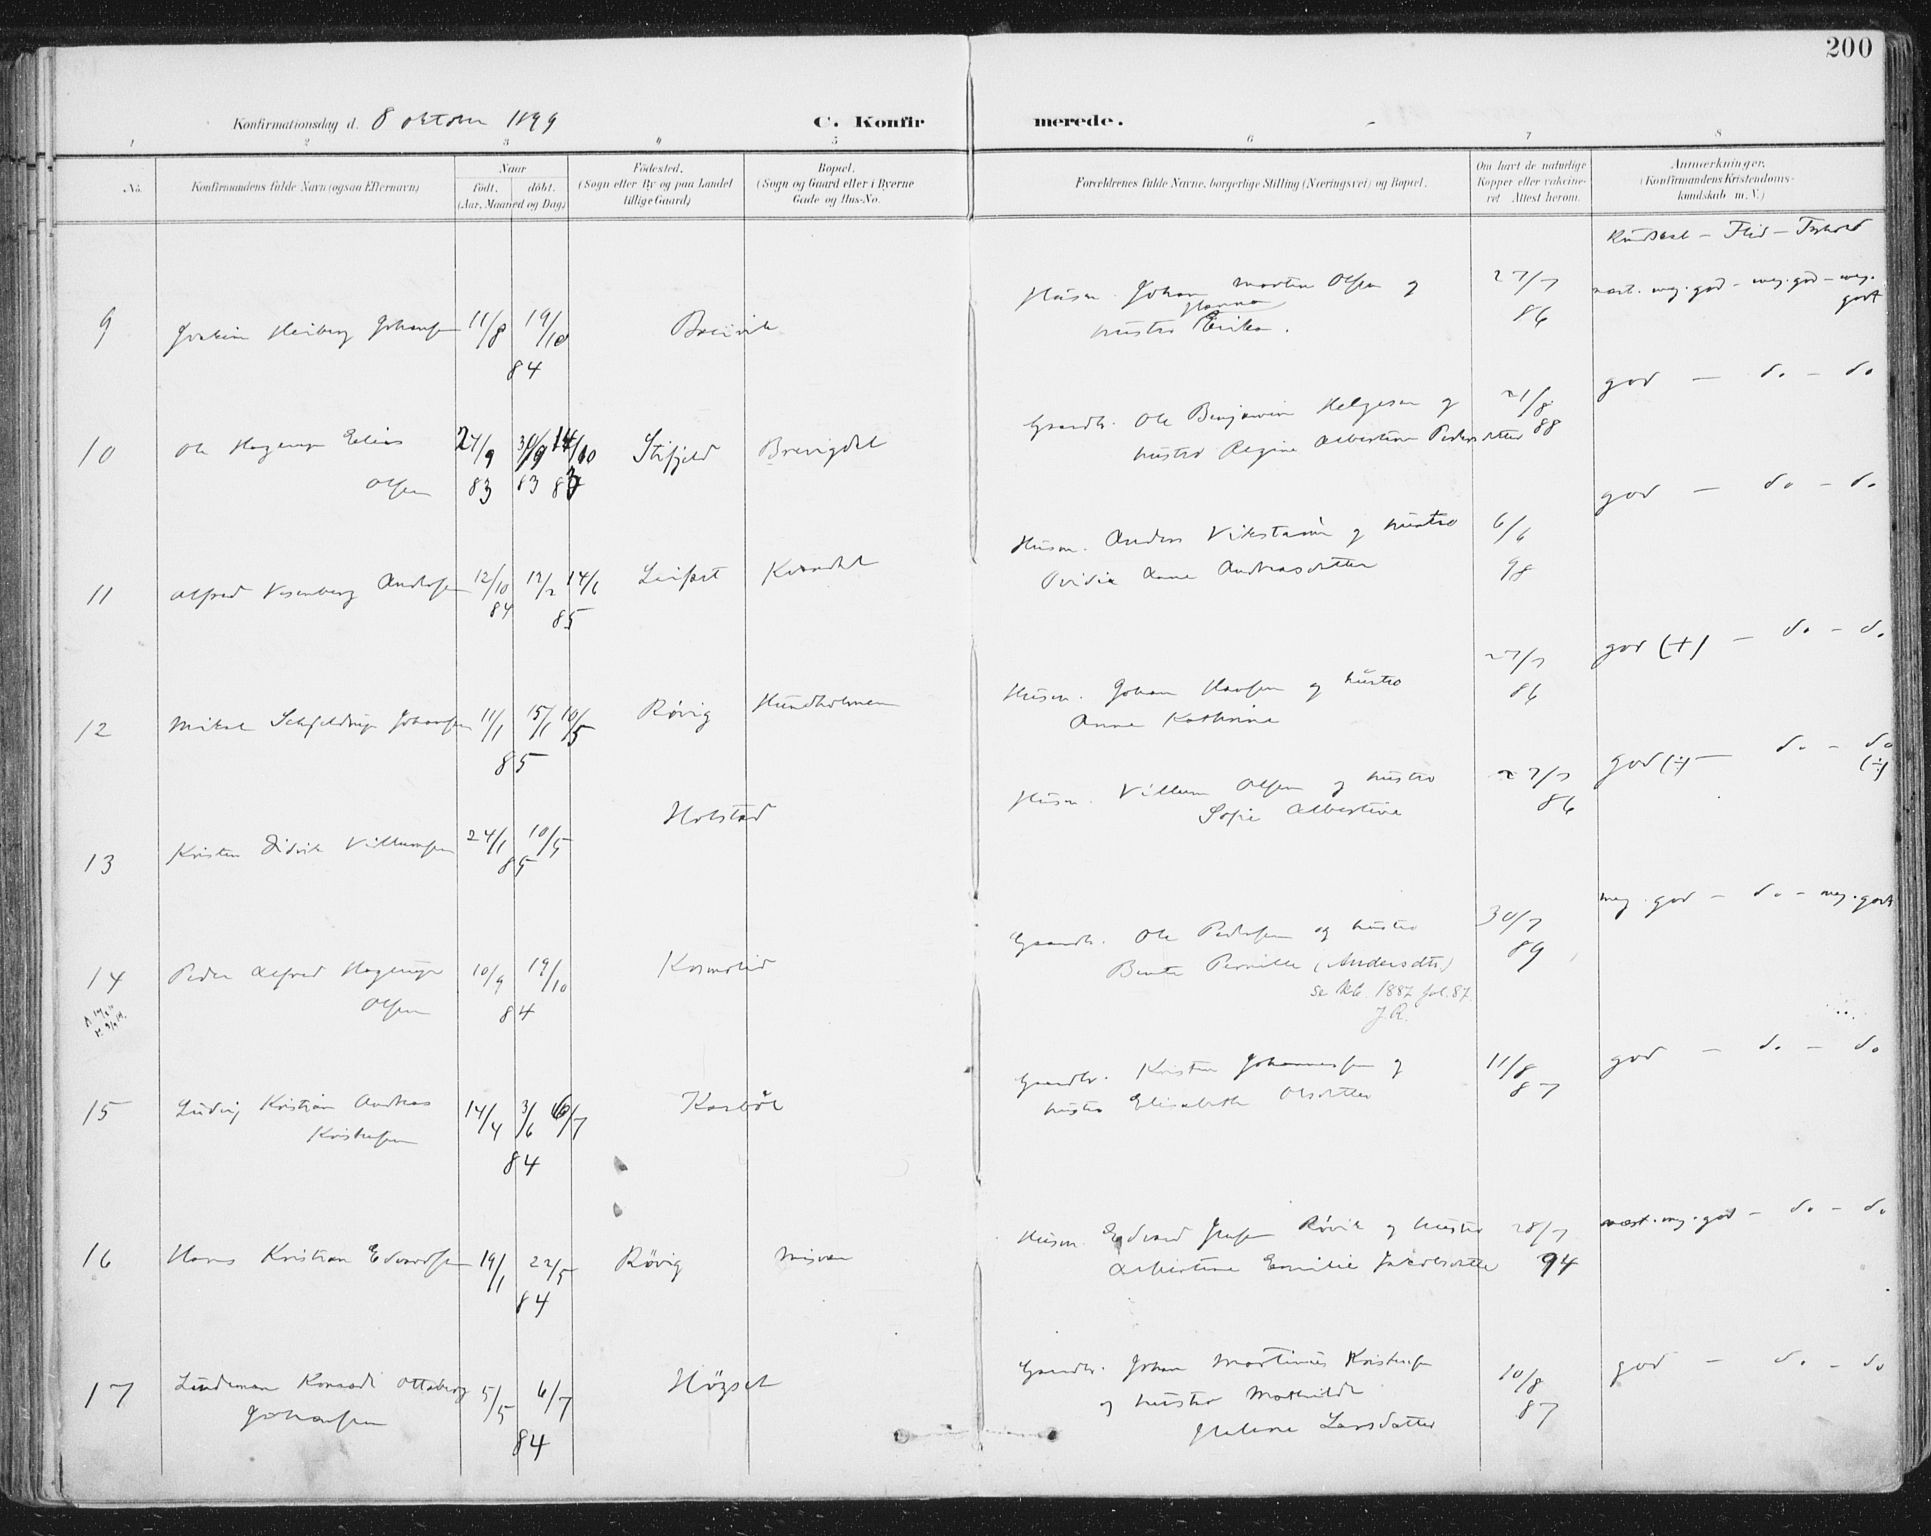 200
Konfirmationsdag d. 8 oktober 1899
C. Konfirmerede.
1 2 3 4 5 6 7 8
No.
Konfirmandens fulde Navn (ogsaa Efternavn)
Naar
født. døbt.
(Aar, Maaned og Dag)
Fødested.
(Sogn eller By og paa Landet
tillige Gaard)
Bopæl.
(Sogn og Gaard eller i Byerne
Gade og Hus-No.
Forældrenes fulde Navne, borgerlige Stilling (Næringsvei) og Bopæl.
Om havt de naturlige
Kopper eller vakcine-
ret Attest herom.
Anmærkninger.
(Konfirmandens Kristendoms-
kundskab m. V.)
Kundskab – Flid – Forhold
9 Joakim Heiberg Johansen 11/8 19/10 84 Breivik
Husm. Johan Martin Olsen og
Hanna
hustro Erika. 27/7 86
næst. meg. god – meg. god – meg. godt
10 Ole Hagerup Elias 27/9 83 30/9 83 14/10 83 Stifjeld
Olsen
Gaardbr. Ole Benjamin Helgesen og
hustro Regine Albertine Pedersdatter 21/8 88
god – do – do
11 Alfred Vesenberg Andersen 12/10 84 12/2 14/6 85 Leifset Kvandal
Husm. Anders Vikstrøm og hustro
Ovidia Anne Andreasdatter 6/6 98
god – do – do
12 Mikal Schjeldrup Johansen 11/1 15/1 10/5 85 Røvig Hundholmen
Husm. Johan Hansen og hustro
Anne Kathrine 27/7 86
god (+) – do – do
13 Kristen Didrik Villumsen 24/1 10/5 85 Holstad
Husm. Villum Olsen og hustro
Sofie Albertine 27/7 86
god (÷) – do – do (÷)
14 Peder Alfred Hagerup 10/9 19/10 84 Kosmolid
Olsen
Gaardbr. Ole Pedersen og hustro
Bente Pernille (Andersdtr) 30/7 89
se Kb. 1887 fol. 87.
J.R.
meg. god – do – meg. godt
15 Ludvig Kristian Andreas 14/4 3/6 6/7 84 Karbøl
Kristensen
Gaardbr. Kristen Johannessen og
hustro Elisabeth Olsdatter 11/8 87
god – do – do
16 Hans Kristian Edvardsen 19/1 22/5 84 Røvig Misvær
Husm. Edvard Jensen Røvik og hustro
Albertine Emilie Jakobsdatter 28/7 94
næst. meg. god – do – do
17 Lindeman Konradi Ottoberg 5/5 6/7 84 Høgset
Johansen
Gaardbr. Johan Martinus Kristensen
og hustro Mathilde
Helene Larsdatter 10/8 87
god – do – do